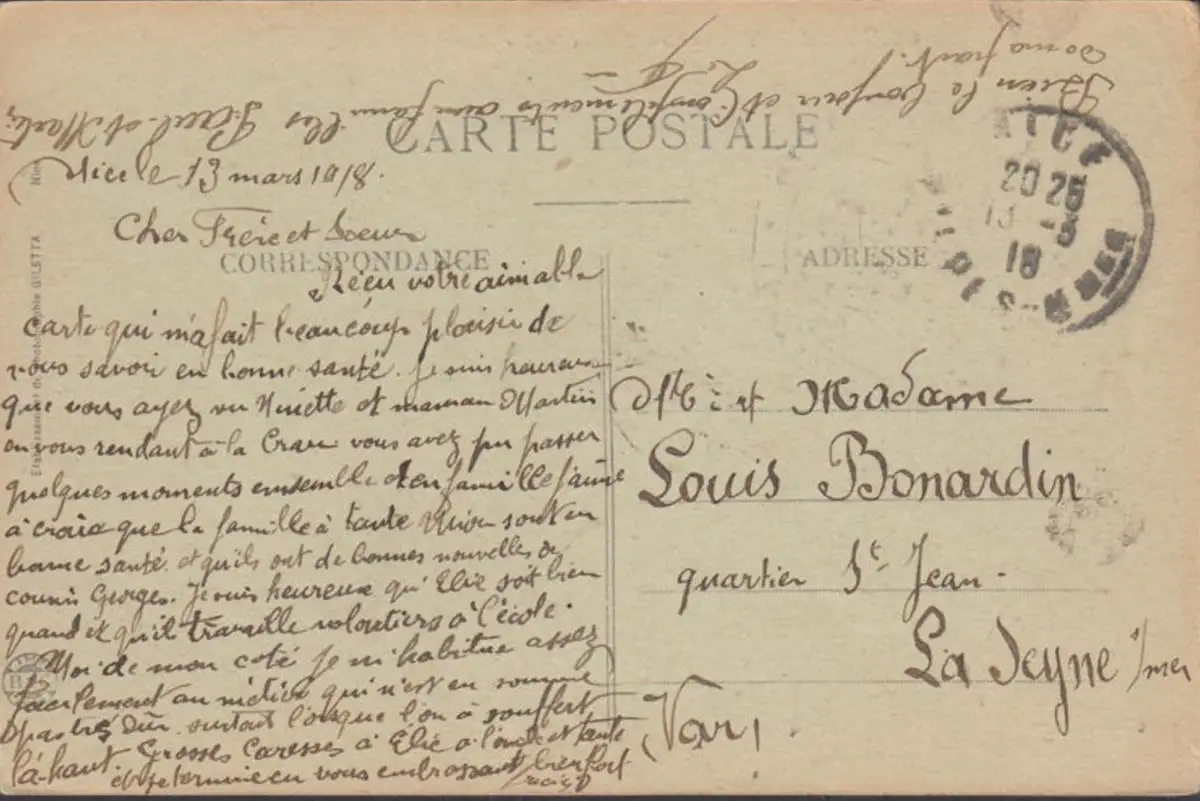 Bien le bonjour et Compliments aux familles Paul et Martin
de ma part.
CARTE POSTALE
Nice le 13 mars 1918.
Cher Frère et Soeur
CORRESPONDANCE
Réçu votre aimable
Carte qui m'a fait beaucoup plaisir de
vous savoir en bonne santé. Je suis heureux
que vous ayez vu Ninette et maman Martin
en vous rendant à la Crau vous avez pu passer
quelques moments ensemble et en famille j'aime
à croire que la famille à tante sont en
bonne santé. et qu'ils ont de bonnes nouvelles de
cousin Georges. Je suis heureux qu'Elie soit bien
quand et qu'il travaille volontiers à l'école.
Moi de mon coté je m'habitue assez
facilement au métier qui n'est en somme
pas très dur surtout lorsque l'on à souffert
là-haut. Grosses Caresses à Elie à l'oncle et tante
et je termine en vous embrassant bien fort
ADRESSE
NICE
20 25
13 - 3
18
ALPES-MMES
Mr et Madame
Louis Bonardin
quartier St Jean.
La Seyne s/mer
Var
Etablissement de Photographie GILETTA Nice